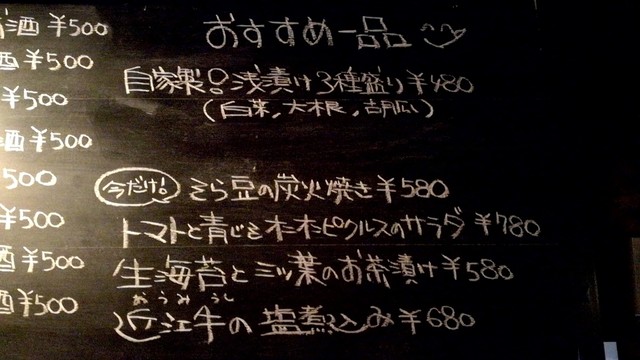 酒 ¥500
酒 ¥500
¥500
酒 ¥500
500
¥500
酒 ¥500
酒 ¥500
おすすめ一品
自家製！浅漬け3種盛り ¥480
(白菜,大根,胡瓜)
今だけ！ そら豆の炭火焼き ¥580
トマトと青じそ ピクルスのサラダ ¥780
生海苔と三ッ葉のお茶漬け ¥580
おうみうし
近江牛の塩煮込み ¥680